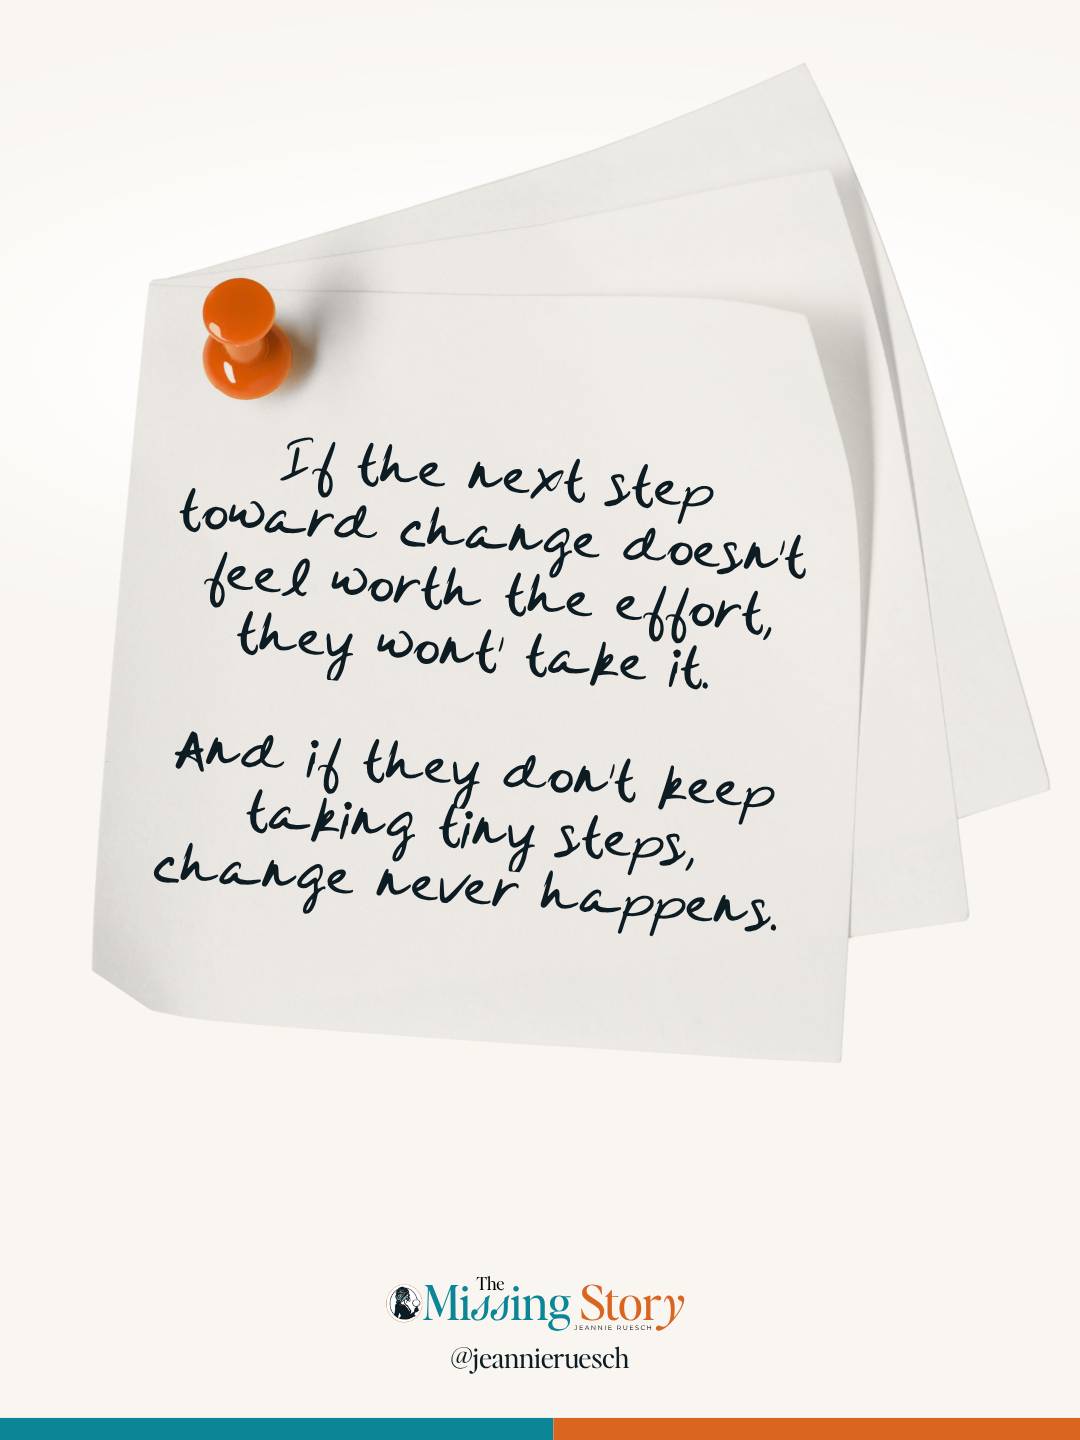 If the next step
toward change doesn't
feel worth the effort,
they wont' take it.
And if they don't keep
taking tiny steps,
change never happens.
The
Missing Story
JEANNIE RUESCH
@jeannieruesch